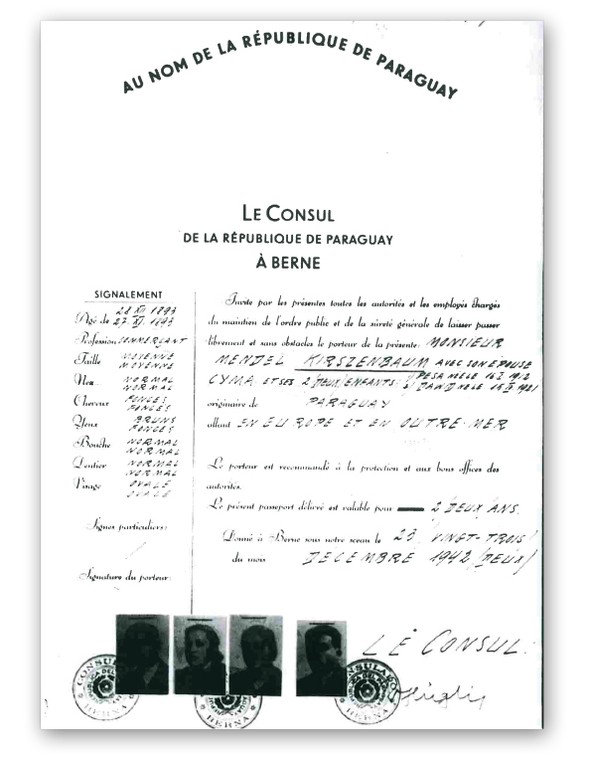 AU NOM DE LA RÉPUBLIQUE DE PARAGUAY
LE CONSUL
DE LA RÉPUBLIQUE DE PARAGUAY
À BERNE
SIGNALEMENT
28 XII 1893
Agé de 27. XI. 1893
Profession COMMERÇANT
Taille MOYENNE
MOYENNE
Nez NORMAL
NORMAL
Cheveux FONCÉS
FONCÉS
Yeux BRUNS
FONCÉS
Bouche NORMAL
NORMAL
Dentier NORMAL
NORMAL
Visage OVALE
OVALE
Signes particuliers:
Signature du porteur:
Invite par les présentes toutes les autorités et les employés chargés
du maintien de l'ordre public et de la sûreté générale de laisser passer
librement et sans obstacles le porteur de la présente: MONSIEUR
MENDEL KIRSZENBAUM AVEC SON ÉPOUSE
CYMA, ET SES 2 /DEUX/ ENFANTS:
originaire de PARAGUAY
allant EN EUROPE ET EN OUTRE-MER
Le porteur est recommandé à la protection et aux bons offices des
autorités.
Le présent passeport délivré est valable pour 2 /DEUX/ ANS.
Donné à Berne sous notre sceau le 23 /VINGT-TROIS/
du mois DECEMBRE 1942 /DEUX/
LE CONSUL:
CONSULADO
BERNA
BERNA
CONSULADO